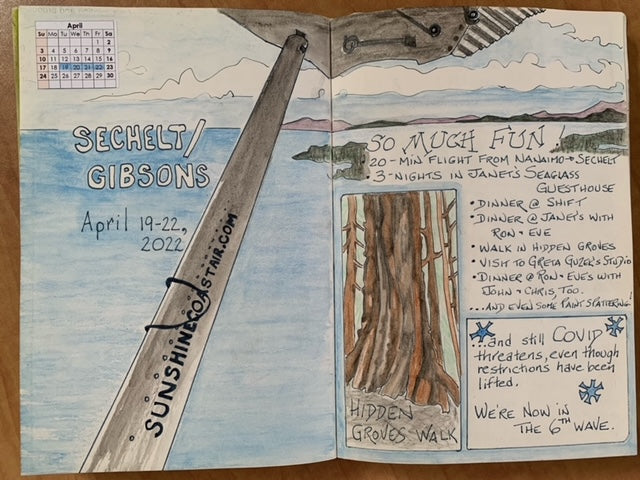 April
Su Mo Tu We Th Fr Sa
1 2
3 4 5 6 7 8 9
10 11 12 13 14 15 16
17 18 19 20 21 22 23
24 25 26 27 28 29 30
SECHELT/
GIBSONS
April 19-22,
2022
SUNSHINECOASTAIR.COM
SO MUCH FUN!
20-MIN FLIGHT FROM NANAIMO → SECHELT
3-NIGHTS IN JANET'S SEAGLASS
GUESTHOUSE
• DINNER @ SHIFT
• DINNER @ JANET'S WITH
RON + EVE
• WALK IN HIDDEN GROVES
• VISIT TO GRETA GUZEK'S STUDIO
• DINNER @ RON + EVE'S WITH
JOHN + CHRIS, TOO.
...AND EVEN SOME PAINT SPATTERING!
HIDDEN
GROVES WALK
...and still COVID
threatens, even though
restrictions have been
lifted.
WE'RE NOW IN
THE 6TH WAVE.